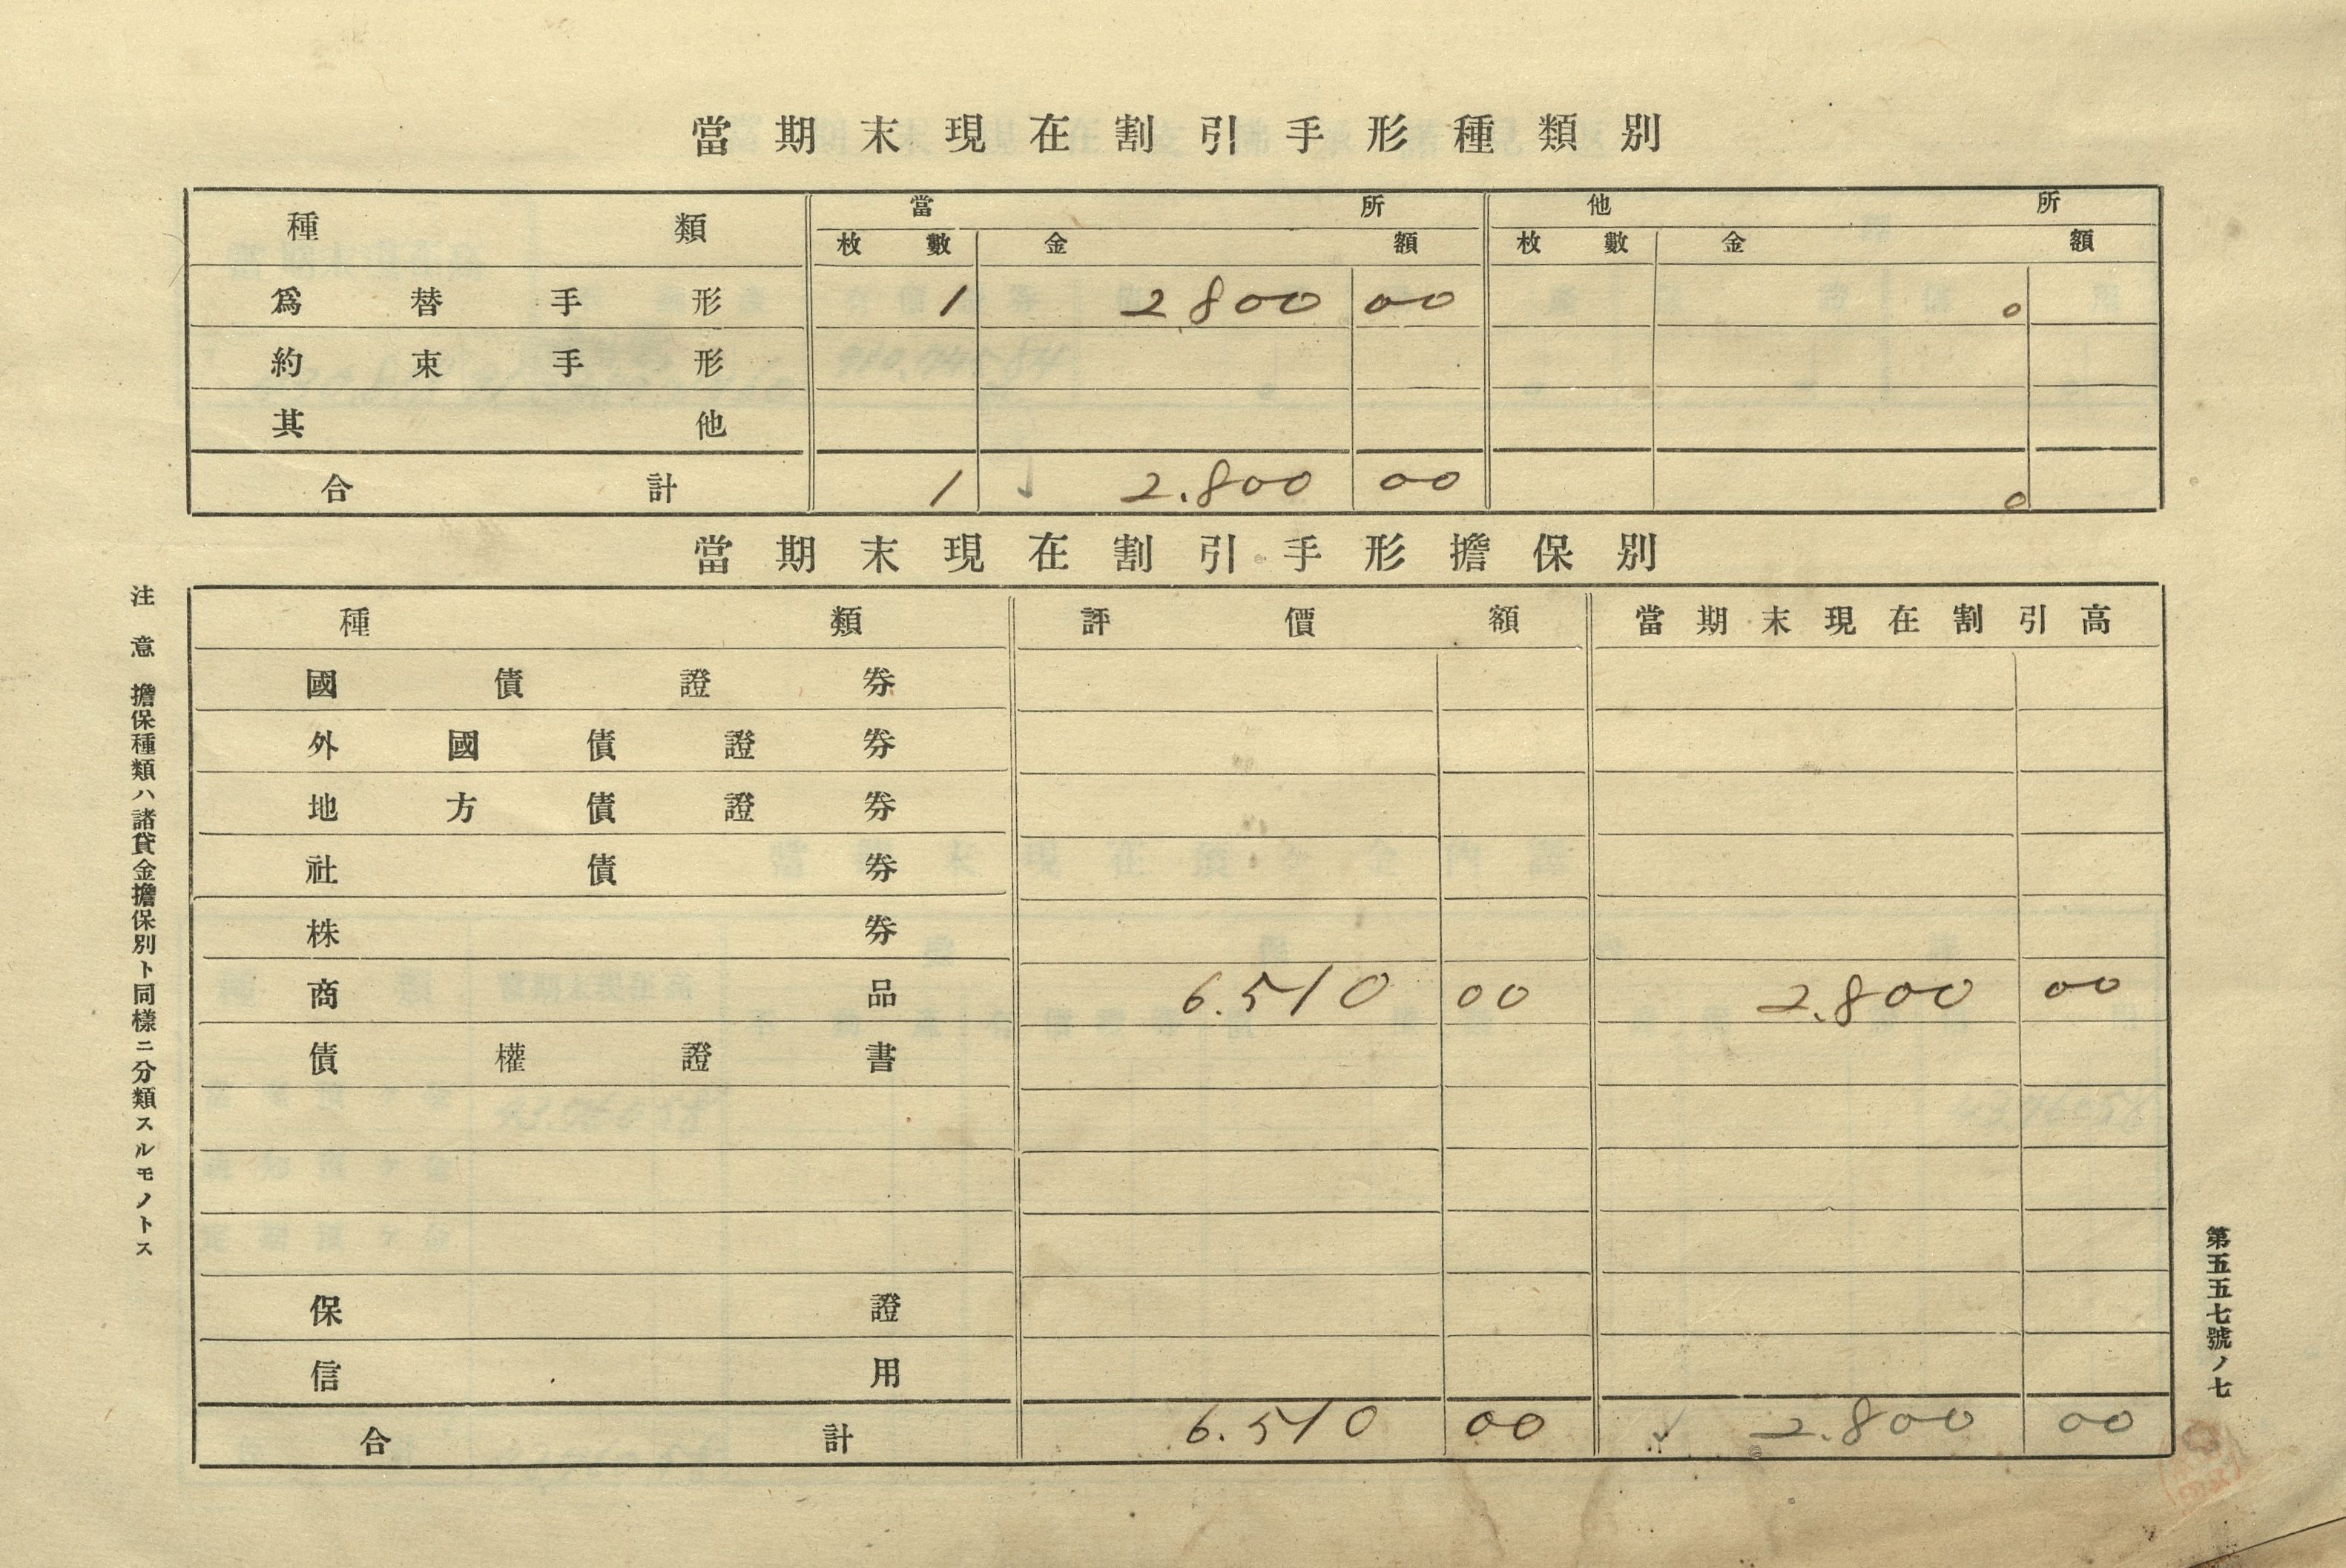 當期末現在割引手形種類別
種類 當所 他所
枚數 金額 枚數 金額
爲替手形 1 2800 00 0
約束手形
其他
合計 1 2.800 00 0
當期末現在割引手形擔保別
種類 評價額 當期末現在割引高
國債證券
外國債證券
地方債證券
社債券
株券
商品 6.510 00 2.800 00
債權證書
保證
信用
合計 6.510 00 2.800 00
注意 擔保種類ハ諸貸金擔保別ト同樣ニ分類スルモノトス
第五五七號ノ七